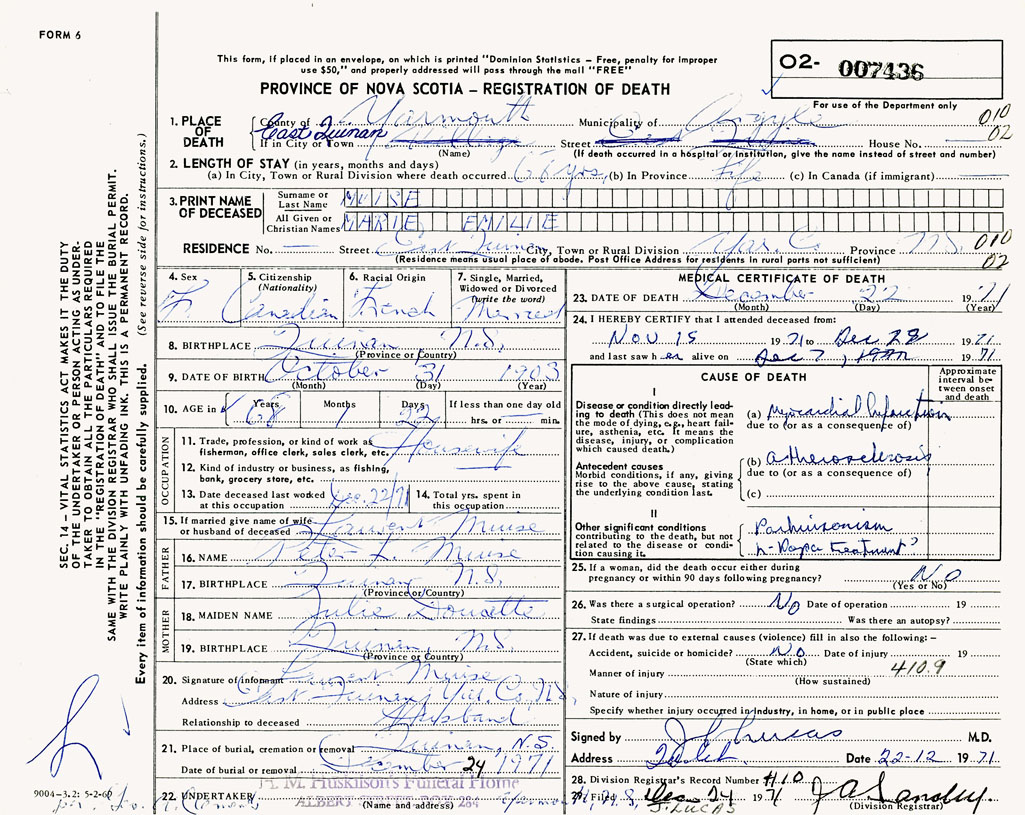 FORM 6
This form, if placed in an envelope, on which is printed "Dominion Statistics – Free, penalty for improper
use $50," and properly addressed will pass through the mail "FREE"
O2- 007436
For use of the Department only
PROVINCE OF NOVA SCOTIA – REGISTRATION OF DEATH
010
02
1. PLACE OF DEATH
County of Yarmouth Municipality of Argyle
East Quinan
If in City or Town Street House No.
(Name) (If death occurred in a hospital or institution, give the name instead of street and number)
2. LENGTH OF STAY (in years, months and days)
(a) In City, Town or Rural Division where death occurred 68 yrs. (b) In Province Life (c) In Canada (if immigrant)
3. PRINT NAME OF DECEASED
Surname or Last Name MUISE
All Given or Christian Names MARIE EMILIE
RESIDENCE No. — Street East Quinan City, Town or Rural Division Yar. Co. Province N.S.
010
02
(Residence means usual place of abode. Post Office Address for residents in rural parts not sufficient)
4. Sex F.
5. Citizenship (Nationality) Canadian
6. Racial Origin French
7. Single, Married, Widowed or Divorced (write the word) Married
8. BIRTHPLACE Quinan N.S.
(Province or Country)
9. DATE OF BIRTH October 31 1903
(Month) (Day) (Year)
10. AGE in Years Months Days If less than one day old
68 1 22 hrs. or min.
OCCUPATION
11. Trade, profession, or kind of work as fisherman, office clerk, sales clerk, etc. Housewife
12. Kind of industry or business, as fishing, bank, grocery store, etc.
13. Date deceased last worked at this occupation Dec. 22/71
14. Total yrs. spent in this occupation
15. If married give name of wife or husband of deceased Laurent Muise
FATHER
16. NAME Peter L. Muise
17. BIRTHPLACE Quinan N.S.
(Province or Country)
MOTHER
18. MAIDEN NAME Julie Doucette
19. BIRTHPLACE Quinan, N.S.
(Province or Country)
20. Signature of informant Laurent Muise
Address East Quinan, Yar. Co. N.S.
Relationship to deceased Husband
21. Place of burial, cremation or removal Quinan, N.S.
Date of burial or removal December 24 1971
22. UNDERTAKER H. M. Huskilson's Funeral Home
(Name and address)
9004–3.2: 5-2-69
MEDICAL CERTIFICATE OF DEATH
23. DATE OF DEATH December 22 1971
(Month) (Day) (Year)
24. I HEREBY CERTIFY that I attended deceased from:
Nov 15 1971 to Dec 22 1971
and last saw her alive on Dec 7, 1971
CAUSE OF DEATH
Approximate interval between onset and death
I
Disease or condition directly leading to death (This does not mean the mode of dying, e.g., heart failure, asthenia, etc. It means the disease, injury, or complication which caused death.)
(a) Myocardial Infarction
due to (or as a consequence of)
Antecedent causes
Morbid conditions, if any, giving rise to the above cause, stating the underlying condition last.
(b) atherosclerosis
due to (or as a consequence of)
(c)
II
Other significant conditions contributing to the death, but not related to the disease or condition causing it.
Parkinsonism
L-Dopa treatment?
25. If a woman, did the death occur either during pregnancy or within 90 days following pregnancy? No
(Yes or No)
26. Was there a surgical operation? No Date of operation 19
State findings Was there an autopsy?
27. If death was due to external causes (violence) fill in also the following: –
Accident, suicide or homicide? No Date of injury 19
(State which)
Manner of injury 410.9
(How sustained)
Nature of injury
Specify whether injury occurred in industry, in home, or in public place
Signed by J Lucas M.D.
Address Date 22-12 1971
28. Division Registrar's Record Number #10
29. Filed Dec 24 1971
J. LUCAS
(Division Registrar)
SEC. 14 – VITAL STATISTICS ACT MAKES IT THE DUTY
OF THE UNDERTAKER OR PERSON ACTING AS UNDER-
TAKER TO OBTAIN ALL THE PARTICULARS REQUIRED
IN THE "REGISTRATION OF DEATH" AND TO FILE THE
SAME WITH THE DIVISION REGISTRAR WHO SHALL ISSUE THE BURIAL PERMIT.
WRITE PLAINLY WITH UNFADING INK. THIS IS A PERMANENT RECORD.
Every item of information should be carefully supplied. (See reverse side for instructions.)